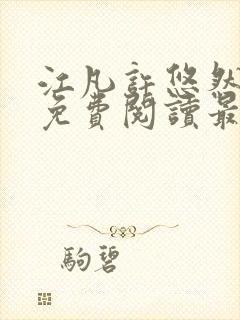 江凡許悠然
免費閱讀最
駒碧